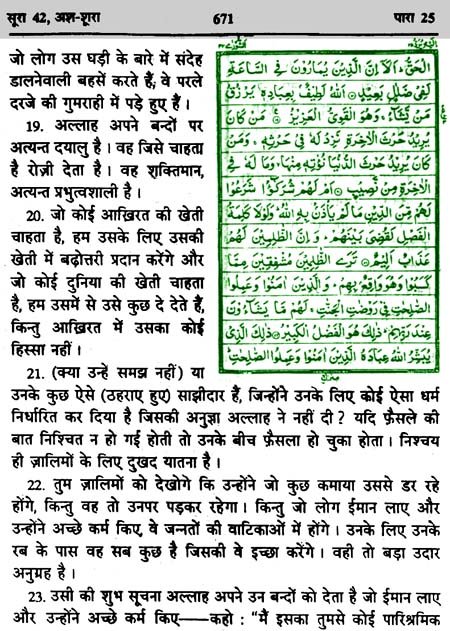 सूरा 42, अश-शूरा 671 पारा 25
जो लोग उस घड़ी के बारे में संदेह
डालनेवाली बहसें करते हैं, वे परले
दरजे की गुमराही में पड़े हुए हैं।
19. अल्लाह अपने बन्दों पर
अत्यन्त दयालु है। वह जिसे चाहता
है रोज़ी देता है। वह शक्तिमान,
अत्यन्त प्रभुत्वशाली है।
20. जो कोई आख़िरत की खेती
चाहता है, हम उसके लिए उसकी
खेती में बढ़ोत्तरी प्रदान करेंगे और
जो कोई दुनिया की खेती चाहता
है, हम उसमें से उसे कुछ दे देते हैं,
किन्तु आख़िरत में उसका कोई
हिस्सा नहीं।
21. (क्या उन्हें समझ नहीं) या
الْحَقُّ ۗ أَلَا إِنَّ الَّذِينَ يُمَارُونَ فِي السَّاعَةِ
لَفِي ضَلَالٍ بَعِيدٍ ۝ اللَّهُ لَطِيفٌ بِعِبَادِهِ يَرْزُقُ
مَنْ يَشَاءُ ۚ وَهُوَ الْقَوِيُّ الْعَزِيزُ ۝ مَنْ كَانَ
يُرِيدُ حَرْثَ الْآخِرَةِ نَزِدْ لَهُ فِي حَرْثِهِ ۚ وَمَنْ
كَانَ يُرِيدُ حَرْثَ الدُّنْيَا نُؤْتِهِ مِنْهَا وَمَا لَهُ فِي
الْآخِرَةِ مِنْ نَصِيبٍ ۝ أَمْ لَهُمْ شُرَكَٰؤُا شَرَعُوا
لَهُمْ مِنَ الدِّينِ مَا لَمْ يَأْذَنْ بِهِ اللَّهُ ۚ وَلَوْلَا كَلِمَةُ
الْفَصْلِ لَقُضِيَ بَيْنَهُمْ ۗ وَإِنَّ الظَّالِمِينَ لَهُمْ
عَذَابٌ أَلِيمٌ ۝ تَرَى الظَّالِمِينَ مُشْفِقِينَ مِمَّا
كَسَبُوا وَهُوَ وَاقِعٌ بِهِمْ ۗ وَالَّذِينَ آمَنُوا وَعَمِلُوا
الصَّالِحَاتِ فِي رَوْضَاتِ الْجَنَّاتِ ۚ لَهُمْ مَا يَشَاءُونَ
عِنْدَ رَبِّهِمْ ۚ ذَٰلِكَ هُوَ الْفَضْلُ الْكَبِيرُ ۝ ذَٰلِكَ الَّذِي
يُبَشِّرُ اللَّهُ عِبَادَهُ الَّذِينَ آمَنُوا وَعَمِلُوا الصَّالِحَاتِ ۗ
उनके कुछ ऐसे (ठहराए हुए) साझीदार हैं, जिन्होंने उनके लिए कोई ऐसा धर्म
निर्धारित कर दिया है जिसकी अनुज्ञा अल्लाह ने नहीं दी? यदि फ़ैसले की
बात निश्चित न हो गई होती तो उनके बीच फ़ैसला हो चुका होता। निश्चय
ही ज़ालिमों के लिए दुखद यातना है।
22. तुम ज़ालिमों को देखोगे कि उन्होंने जो कुछ कमाया उससे डर रहे
होंगे, किन्तु वह तो उनपर पड़कर रहेगा। किन्तु जो लोग ईमान लाए और
उन्होंने अच्छे कर्म किए, वे जन्नतों की वाटिकाओं में होंगे। उनके लिए उनके
रब के पास वह सब कुछ है जिसकी वे इच्छा करेंगे। वही तो बड़ा उदार
अनुग्रह है।
23. उसी की शुभ सूचना अल्लाह अपने उन बन्दों को देता है जो ईमान लाए
और उन्होंने अच्छे कर्म किए——कहो : "मैं इसका तुमसे कोई पारिश्रमिक